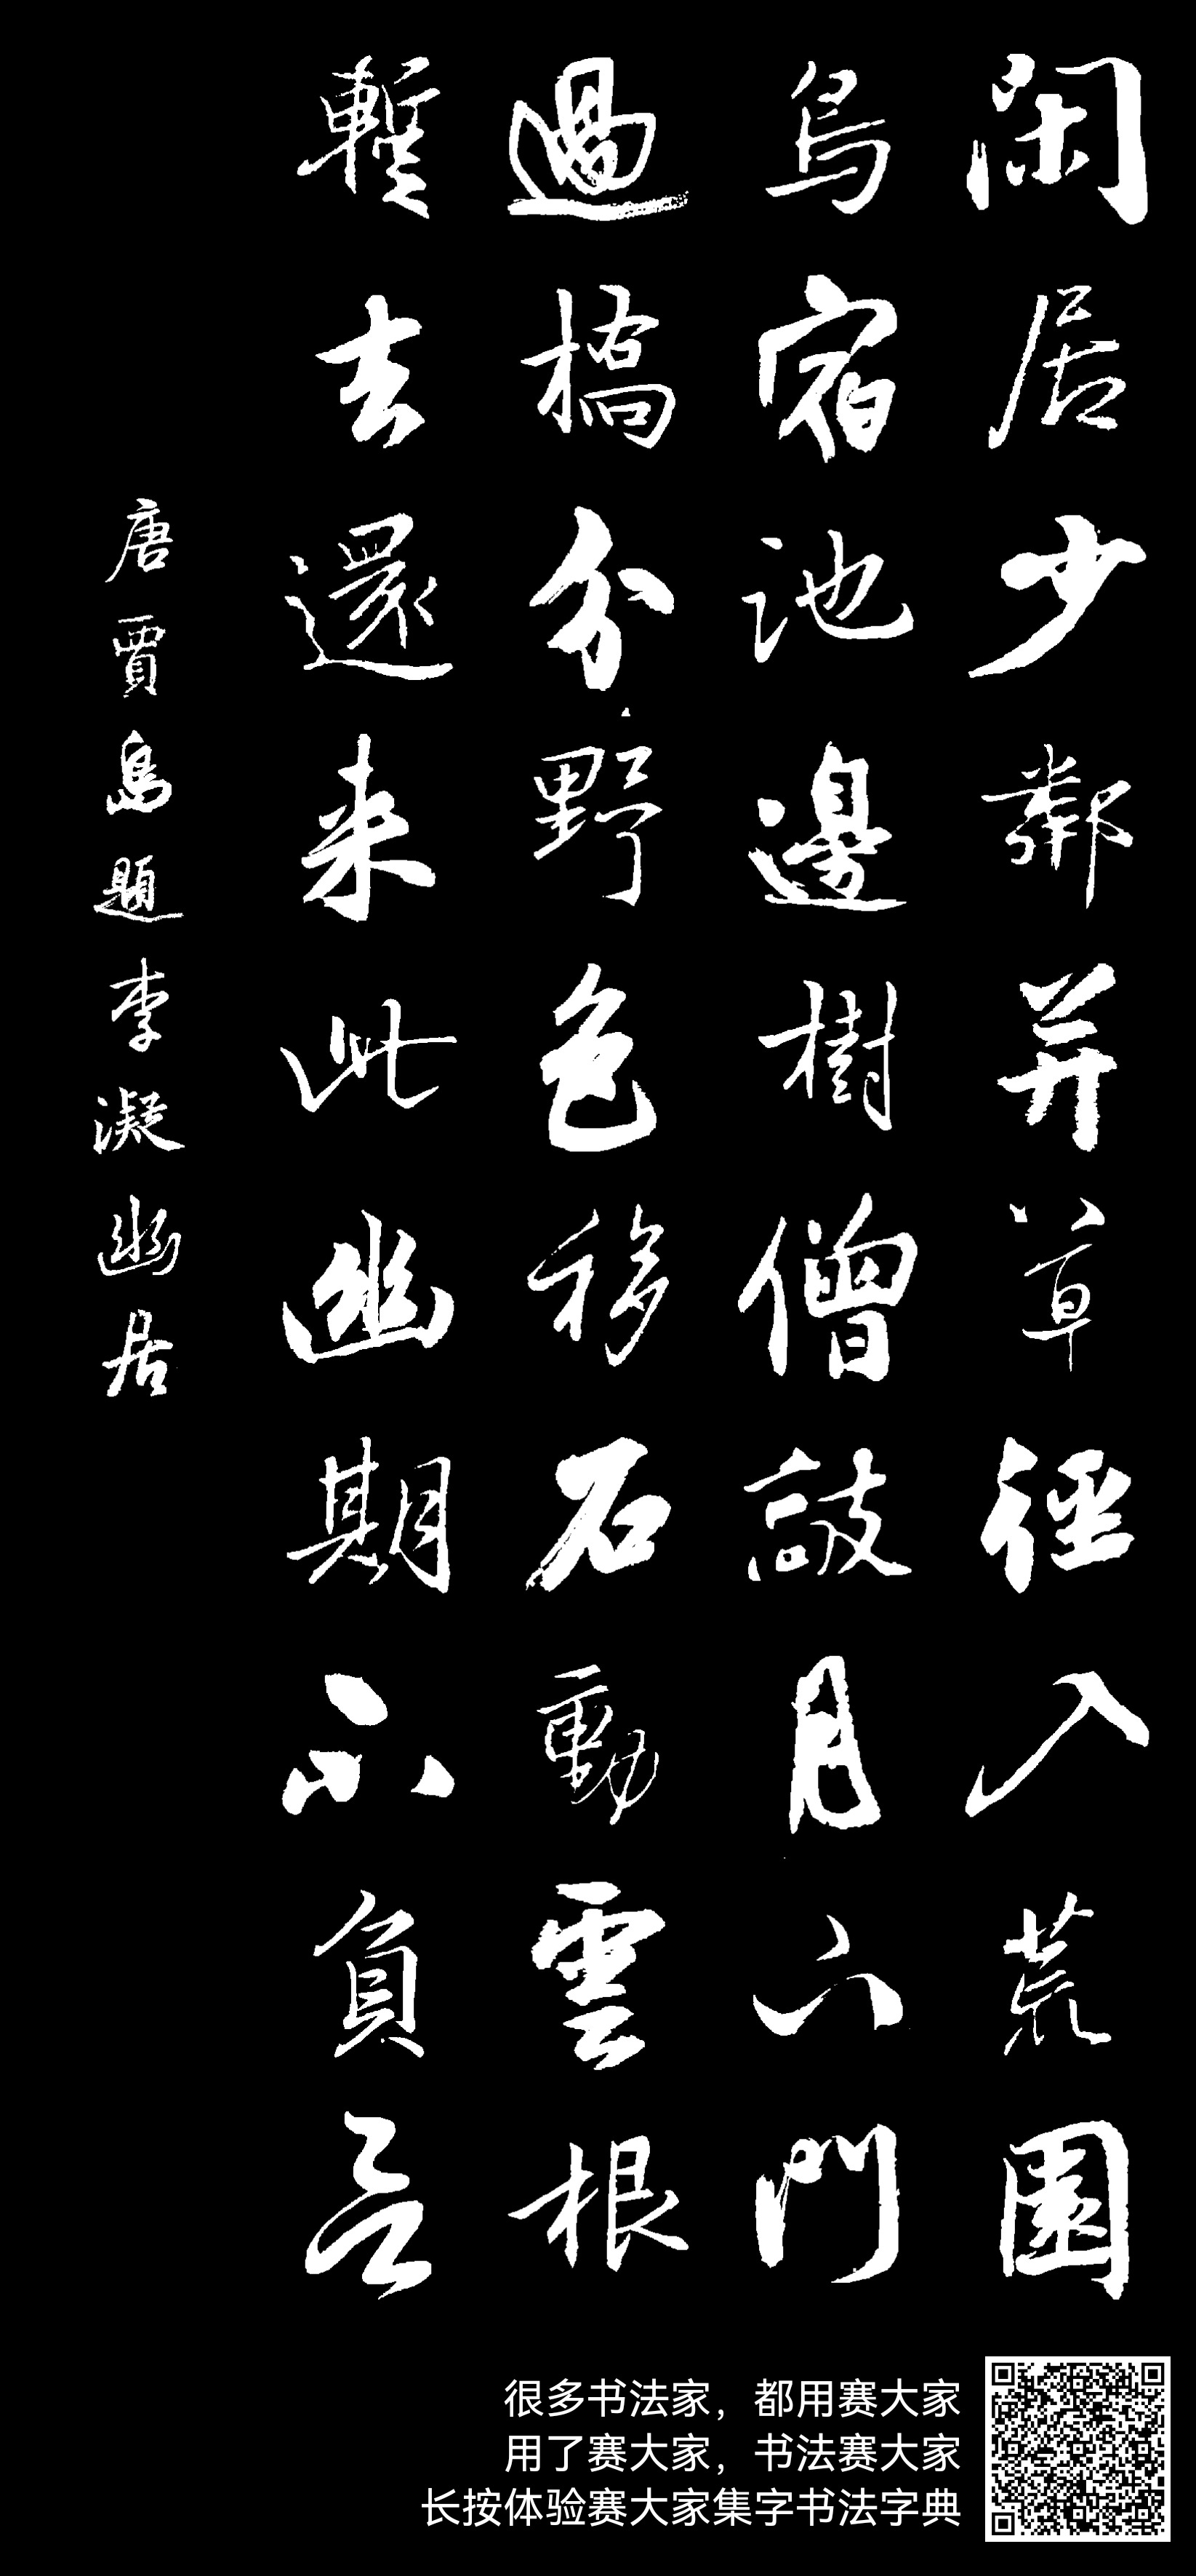 閑居少鄰并草徑入荒園
鳥宿池邊樹僧敲月下門
過橋分野色移石動雲根
暫去還来此幽期不負言
唐賈島題李凝幽居
很多书法家，都用赛大家
用了赛大家，书法赛大家
长按体验赛大家集字书法字典